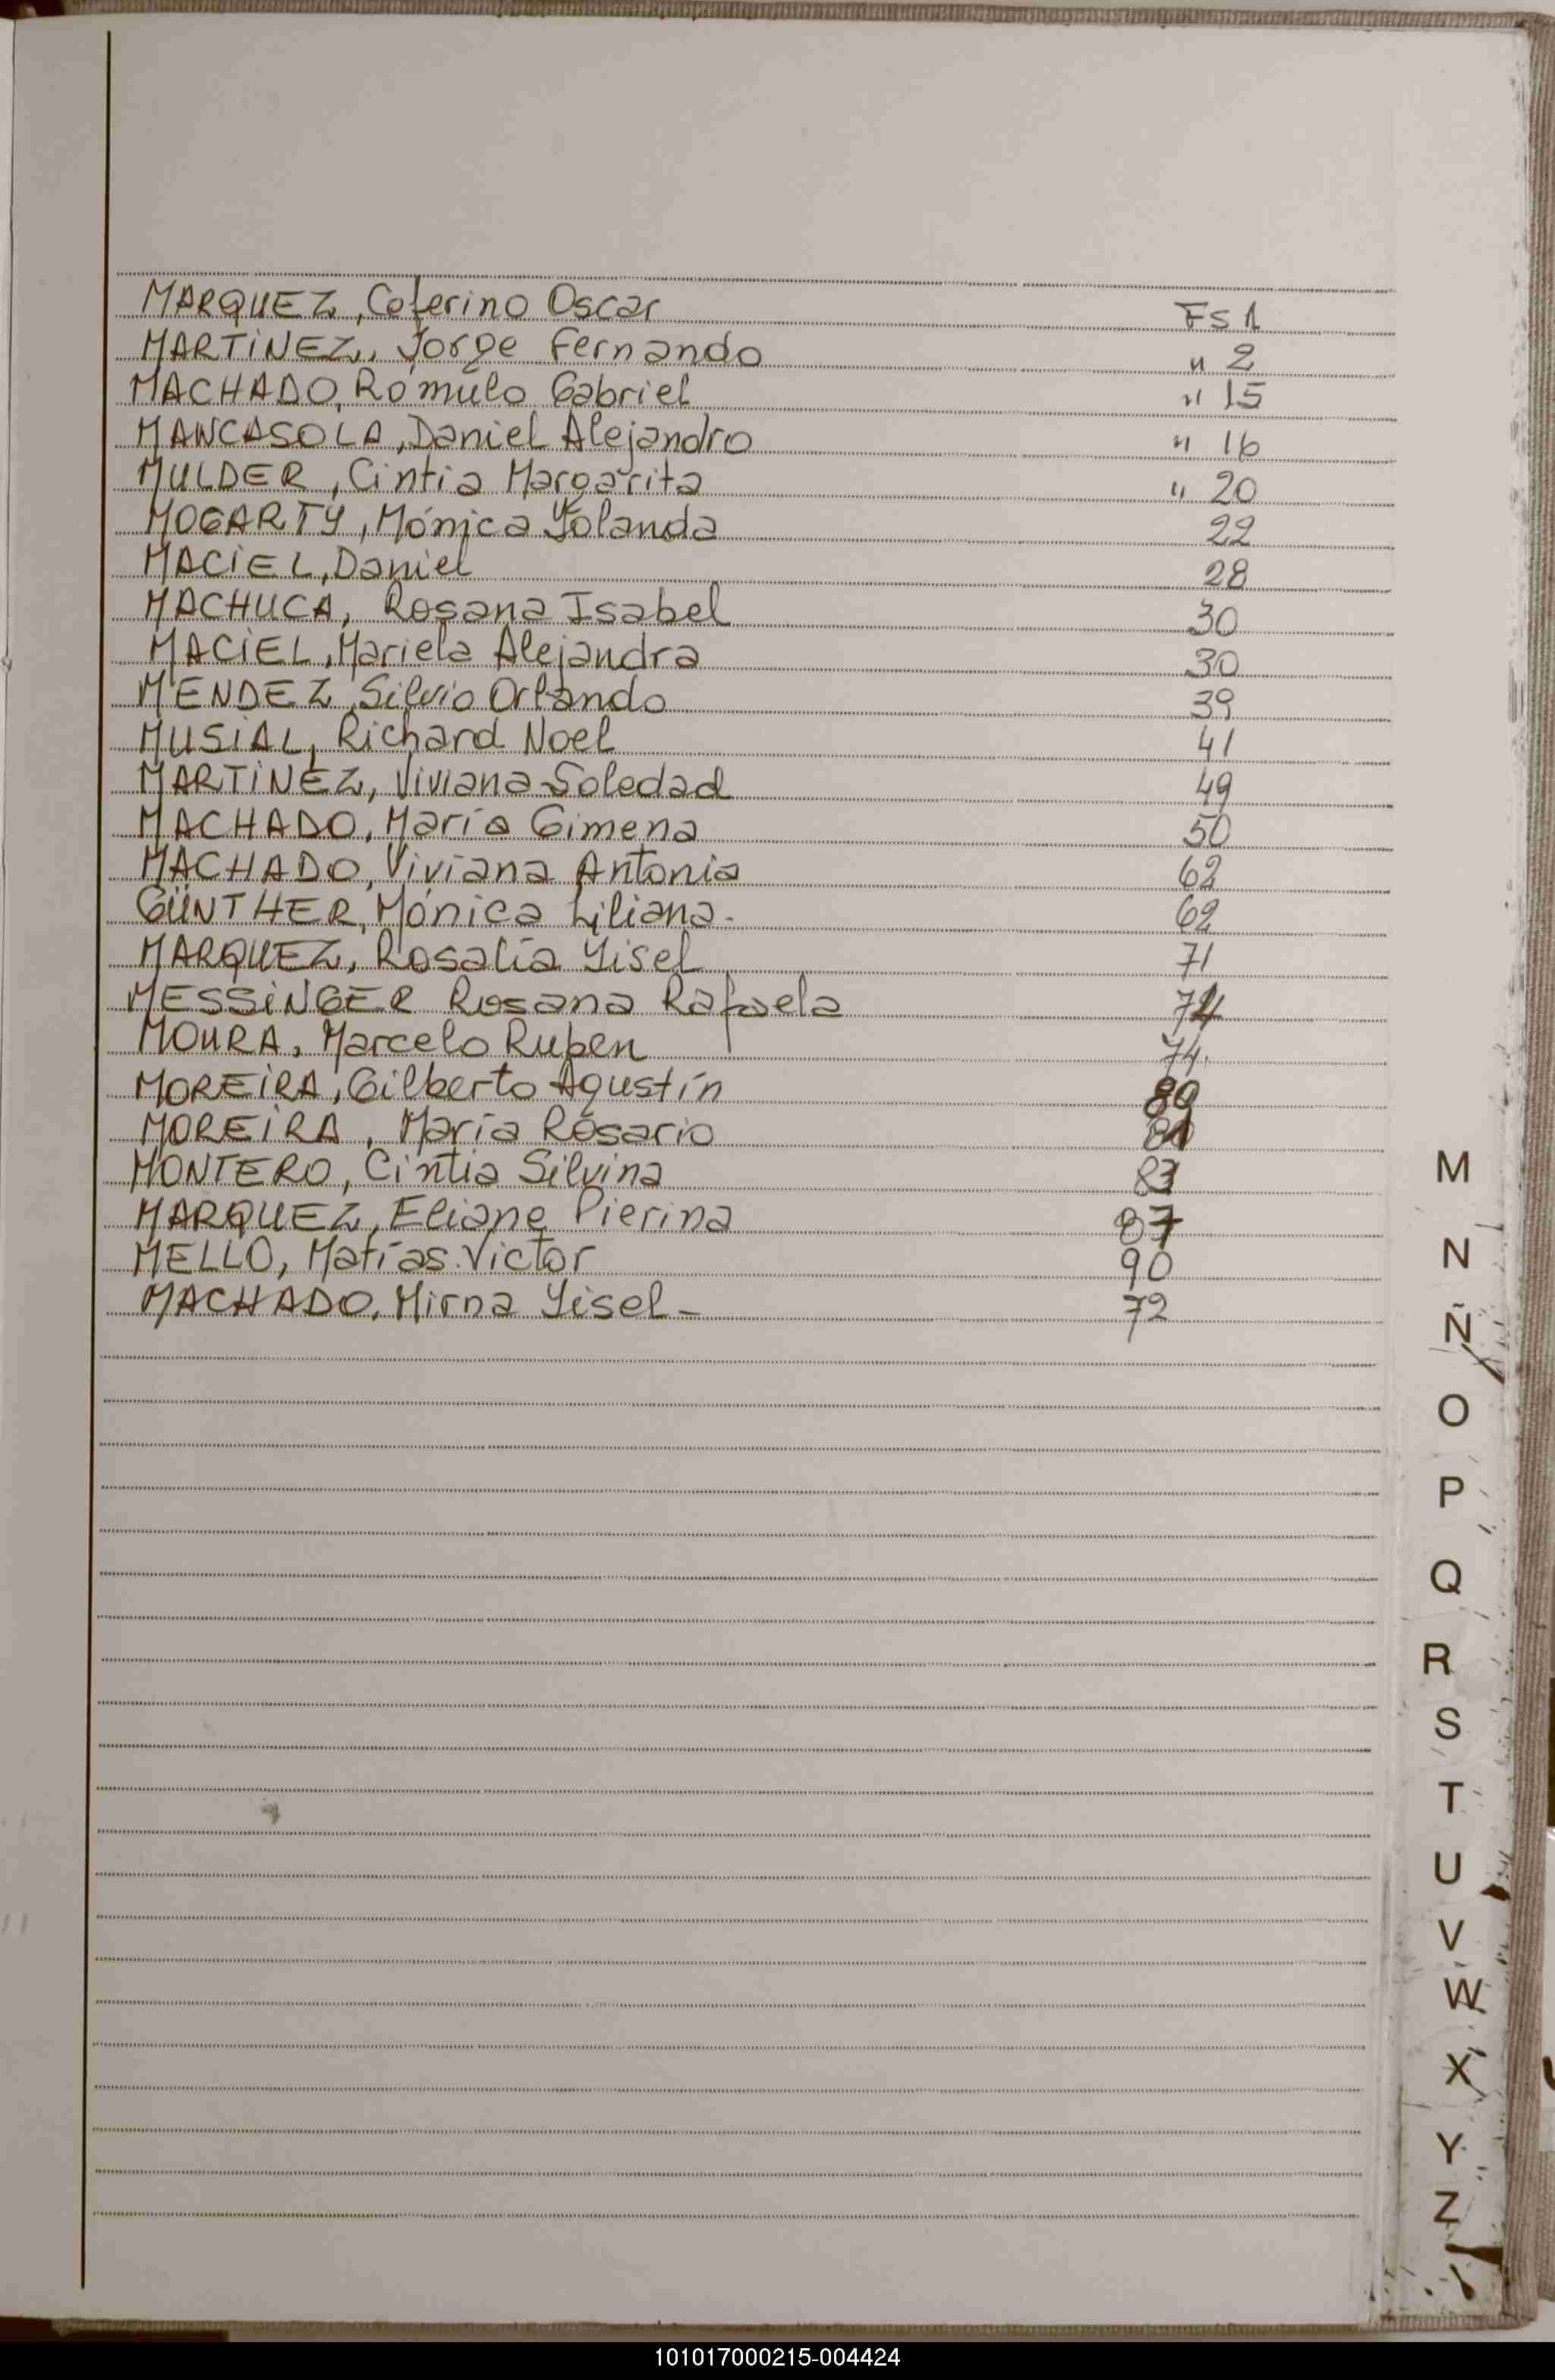 MARQUEZ, Ceferino Oscar Fs 1
MARTINEZ, Jorge Fernando " 2
MACHADO, Romulo Gabriel " 15
MANCASOLA, Daniel Alejandro " 16
MULDER, Cintia Margarita " 20
MOGARTY, Mónica Yolanda 22
MACIEL, Daniel 28
MACHUCA, Rosana Isabel 30
MACIEL, Mariela Alejandra 30
MENDEZ, Silvio Orlando 39
MUSIAL, Richard Noel 41
MARTINEZ, Viviana Soledad 49
MACHADO, María Gimena 50
MACHADO, Viviana Antonia 62
GÜNTHER, Mónica Liliana. 62
MARQUEZ, Rosalía Yisel 71
MESSINGER Rosana Rafaela
MOURA, Marcelo Ruben 74.
MOREIRA, Gilberto Agustín
MOREIRA, María Rosario
MONTERO, Cintia Silvina 83
MARQUEZ, Eliane Pierina 87
MELLO, Matías Victor 90
MACHADO, Mirna Yisel - 72
M
N
Ñ
O
P
Q
R
S
T
U
V
W
X
Y
Z
101017000215-004424